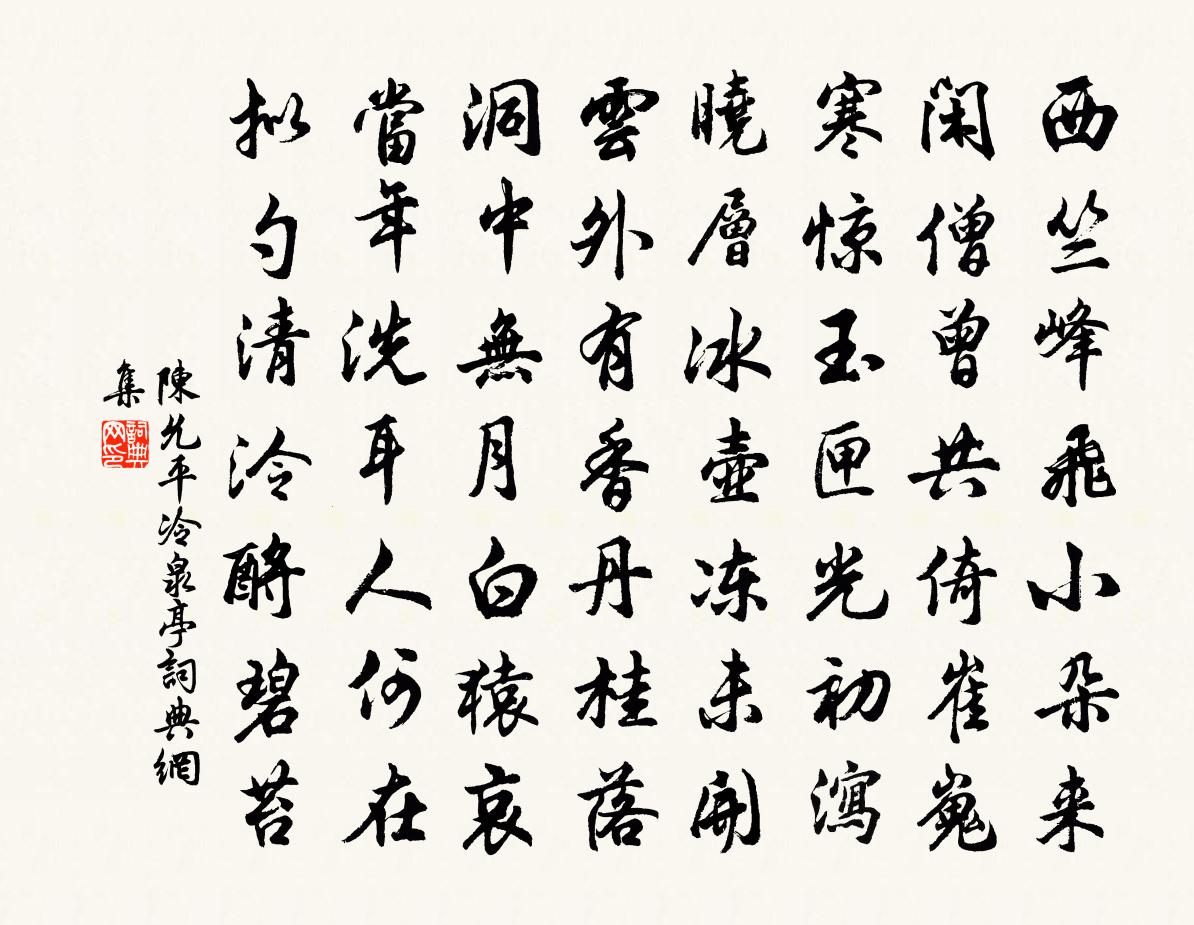 西竺峰飛小朵来
閑僧曾共倚崔嵬
寒惊玉匣光初瀉
曉層冰壺冻未開
雲外有香丹桂落
洞中無月白猿哀
當年洗耳人何在
拟勺清泠酹碧苔
陳允平冷泉亭詞典網
集
詞典网印